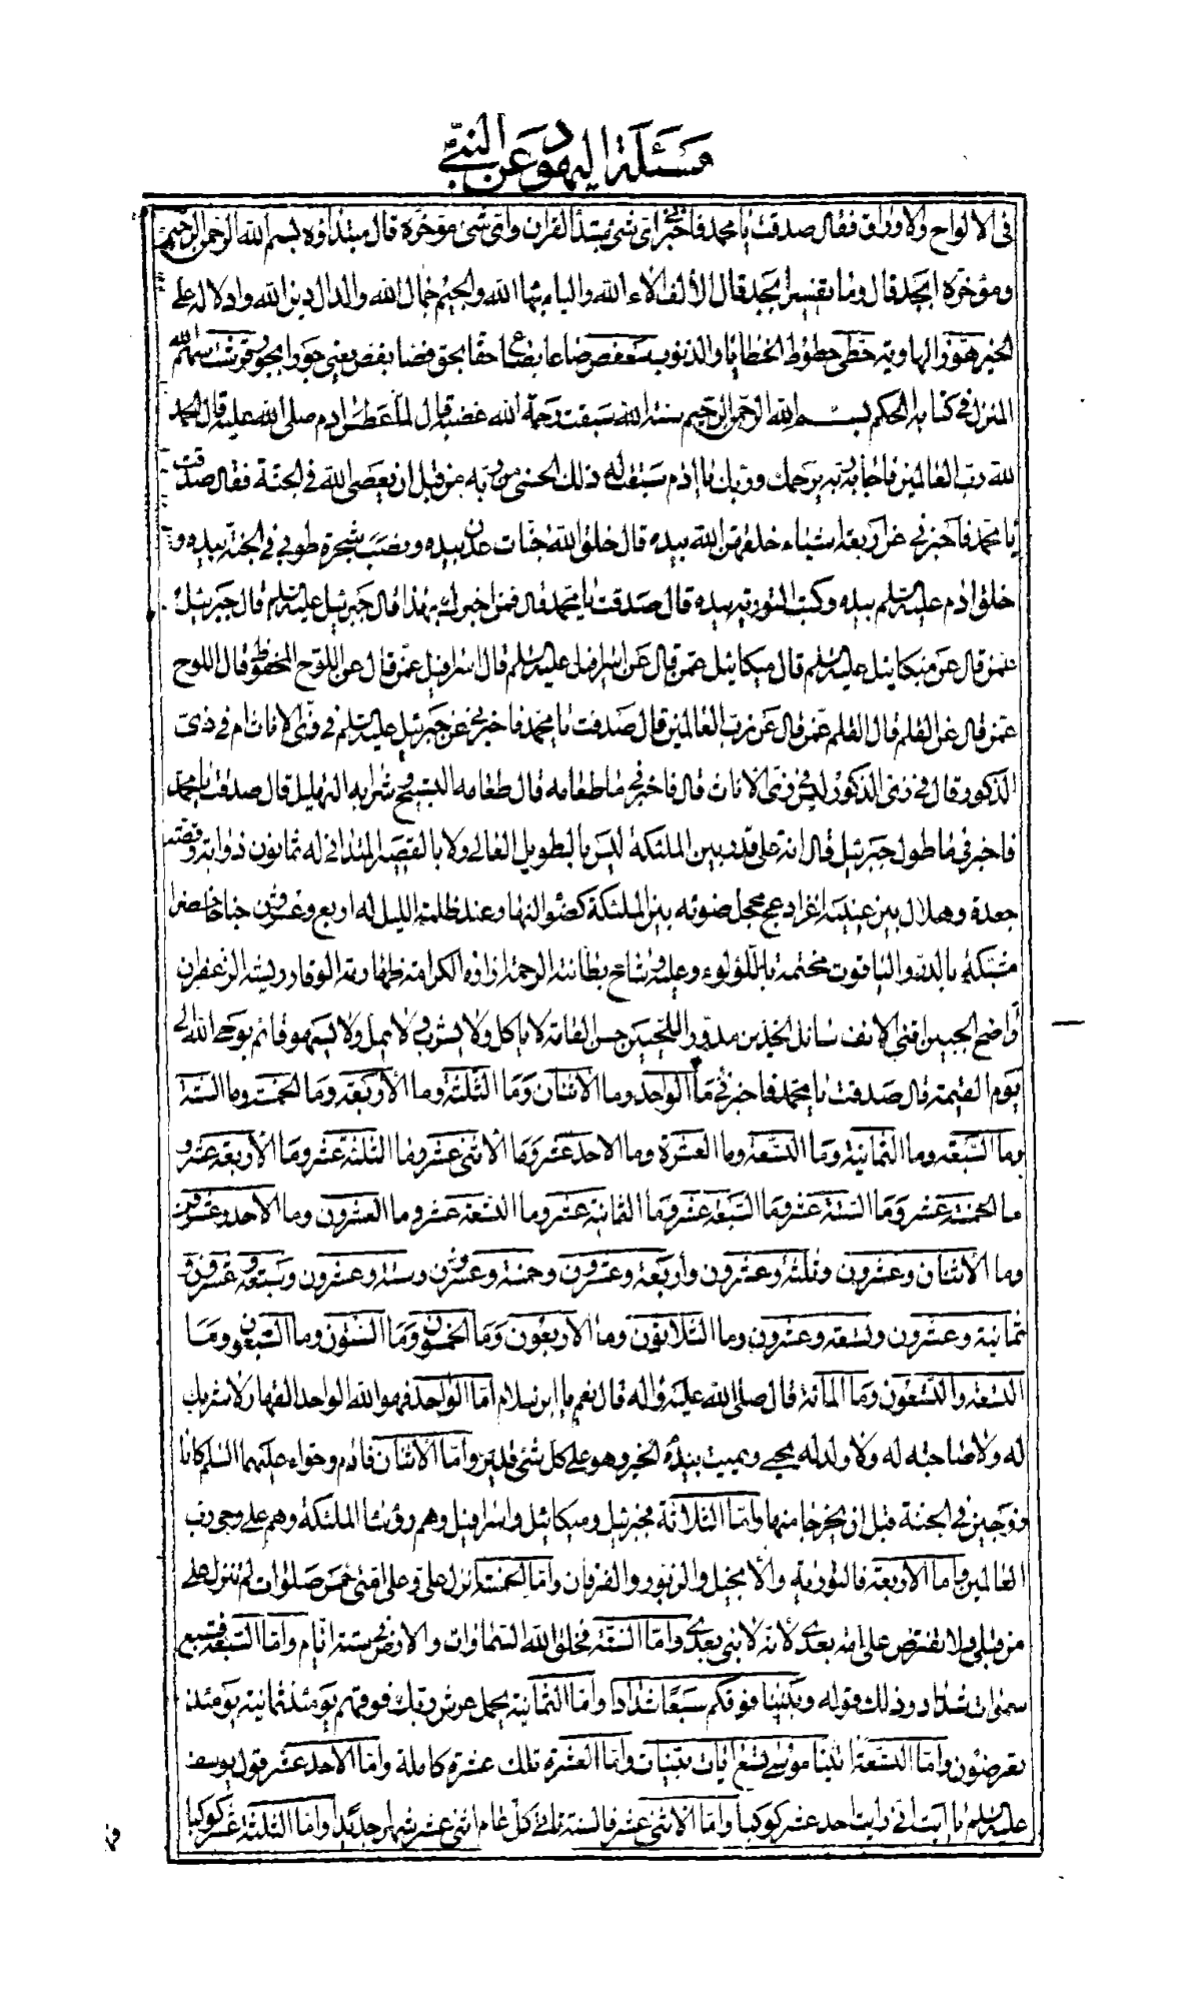 مسئلة اليهود عن النبي
في الالواح والاوراق فقال صدقت يا محمد فاخبرني اي شئ مبتدأ القران واي شئ مؤخره قال مبتداؤه بسم الله الرحمن الرحيم
ومؤخره ابجد قال وما تفسير ابجد قال الألف الاء الله والباء بهاء الله والجيم جمال الله والدال دين الله وادلاله على
الخير هوز الهاوية حطي حطوط الخطايا والذنوب سعفص صاعا بصاع حقا بحق فصا بفص يعني جورا بجور قرشت سهم الله
المنزل في كتابه المحكم بسم الله الرحمن الرحيم سنة الله سبقت رحمة الله غضبه قال لما عطس ادم صلى الله عليه قال الحمد
لله رب العالمين فاجابه ربه يرحمك ربك يا ادم سبقت له ذلك الحسنى من ربه من قبل ان يعصى الله في الجنة فقال صدقت
يا محمد فاخبرني عن اربعة اشياء خلقهن الله بيده قال خلق الله جنات عدن بيده ونصب شجرة طوبى في الجنة بيده و
خلق ادم عليه السلم بيده وكتب التورية بيده قال صدقت يا محمد قال فمن اخبرك بهذا قال جبرئيل عليه السلم قال جبرئيل
عمن قال عن ميكائيل عليه السلم قال ميكائيل عمن قال عن اسرافيل عليه السلم قال اسرافيل عمن قال عن اللوح المحفوظ قال اللوح
عمن قال عن القلم قال القلم عمن قال عن رب العالمين قال صدقت يا محمد فاخبرني عن جبرئيل عليه السلم في زي الاناث ام في زي
الذكور قال في زي الذكور ليس في زي الاناث قال فاخبرني ما طعامه قال طعامه التسبيح وشرابه التهليل قال صدقت يا محمد
فاخبرني ما طول جبرئيل قال انه على قدر بين الملئكة ليس بالطويل العالي ولا بالقصير المتداني له ثمانون ذوابة وقصته
جعدة وهلال بين عينيه اغر ادعج محجل ضوئه بين الملئكة كضوء النهار عند ظلمة الليل له اربع وعشرون جناحا خضرا
مشبكة بالدر والياقوت مختمة باللؤلؤ وعليه وشاح بطانته الرحمة ازراره الكرامة ظهارته الوقار ريشه الزعفران
واضح الجبين اقنى الانف سائل الخدين مدور اللحيين حسن القامة لا ياكل ولا يشرب ولا يمل ولا يسهو قائم بوحي الله الى
يوم القيمة قال صدقت يا محمد فاخبرني ما الواحد وما الاثنان وما الثلثة وما الأربعة وما الخمسة وما الستة
وما السبعة وما الثمانية وما التسعة وما العشرة وما الاحد عشر وما الاثنى عشر وما الثلثة عشر وما الأربعة عشر و
ما الخمسة عشر وما الستة عشر وما السبعة عشر وما الثمانية عشر وما التسعة عشر وما العشرون وما الاحد وعشرون
وما الاثنان وعشرون وثلثة وعشرون وأربعة وعشرون وخمسة وعشرون وستة وعشرون وسبعة وعشرون و
ثمانية وعشرون وتسعة وعشرون وما الثلاثون وما الاربعون وما الخمسون وما الستون وما السبعون وما
التسعة والتسعون وما المائة قال صلى الله عليه واله قال نعم يا ابن سلام اما الواحد فهو الله الواحد القهار لا شريك
له ولا صاحبة له ولا ولد له يحيي ويميت بيده الخير وهو على كل شئ قدير واما الاثنان فادم وحواء عليهما السلم كانا
زوجين في الجنة قبل ان يخرجا منها واما الثلاثة فجبرئيل وميكائيل واسرافيل وهم رؤساء الملئكة وهم على وحي رب
العالمين واما الاربعة فالتورية والانجيل والزبور والفرقان واما الخمسة انزل علي وعلى امتي خمس صلوات لم تنزل على
من قبلي ولا تفترض على امة بعدي لانه لا نبي بعدي واما الستة فخلق الله السماوات والارض في ستة ايام واما السبعة فسبع
سموات شداد وذلك قوله وبنينا فوقكم سبعا شدادا واما الثمانية يحمل عرش ربك فوقهم يومئذ ثمانية يومئذ
تعرضون واما التسعة اتينا موسى تسع ايات بينات واما العشرة تلك عشرة كاملة واما الاحد عشر قول يوسف
عليه السلم يا ابت اني رايت احد عشر كوكبا واما الاثنى عشر فالسنة تاتي كل عام اثنى عشر شهرا جديدا واما الثلثة عشر كوكبا